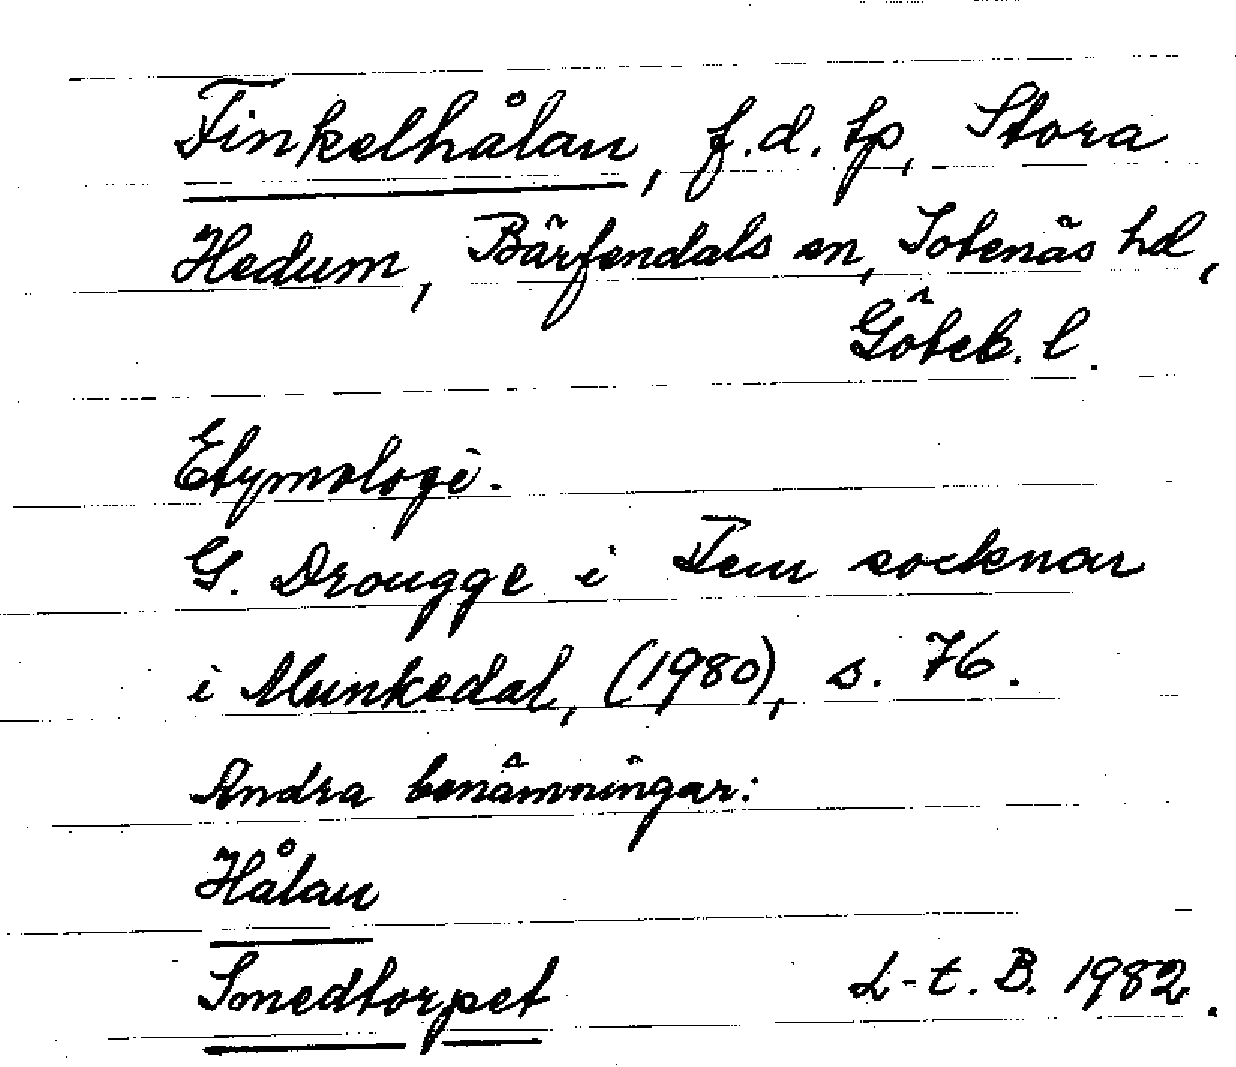 Finkelhålan, f.d. tp, Stora
Hedum, Bärfendals sn, Sotenäs hd,
Göteb. l.
Etymologi.
G. Drougge i Fem socknar
i Munkedal, (1980), s. 76.
Andra benämningar:
Hålan
Smedtorpet
L-t. B. 1982.